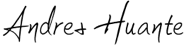 Andres Huante